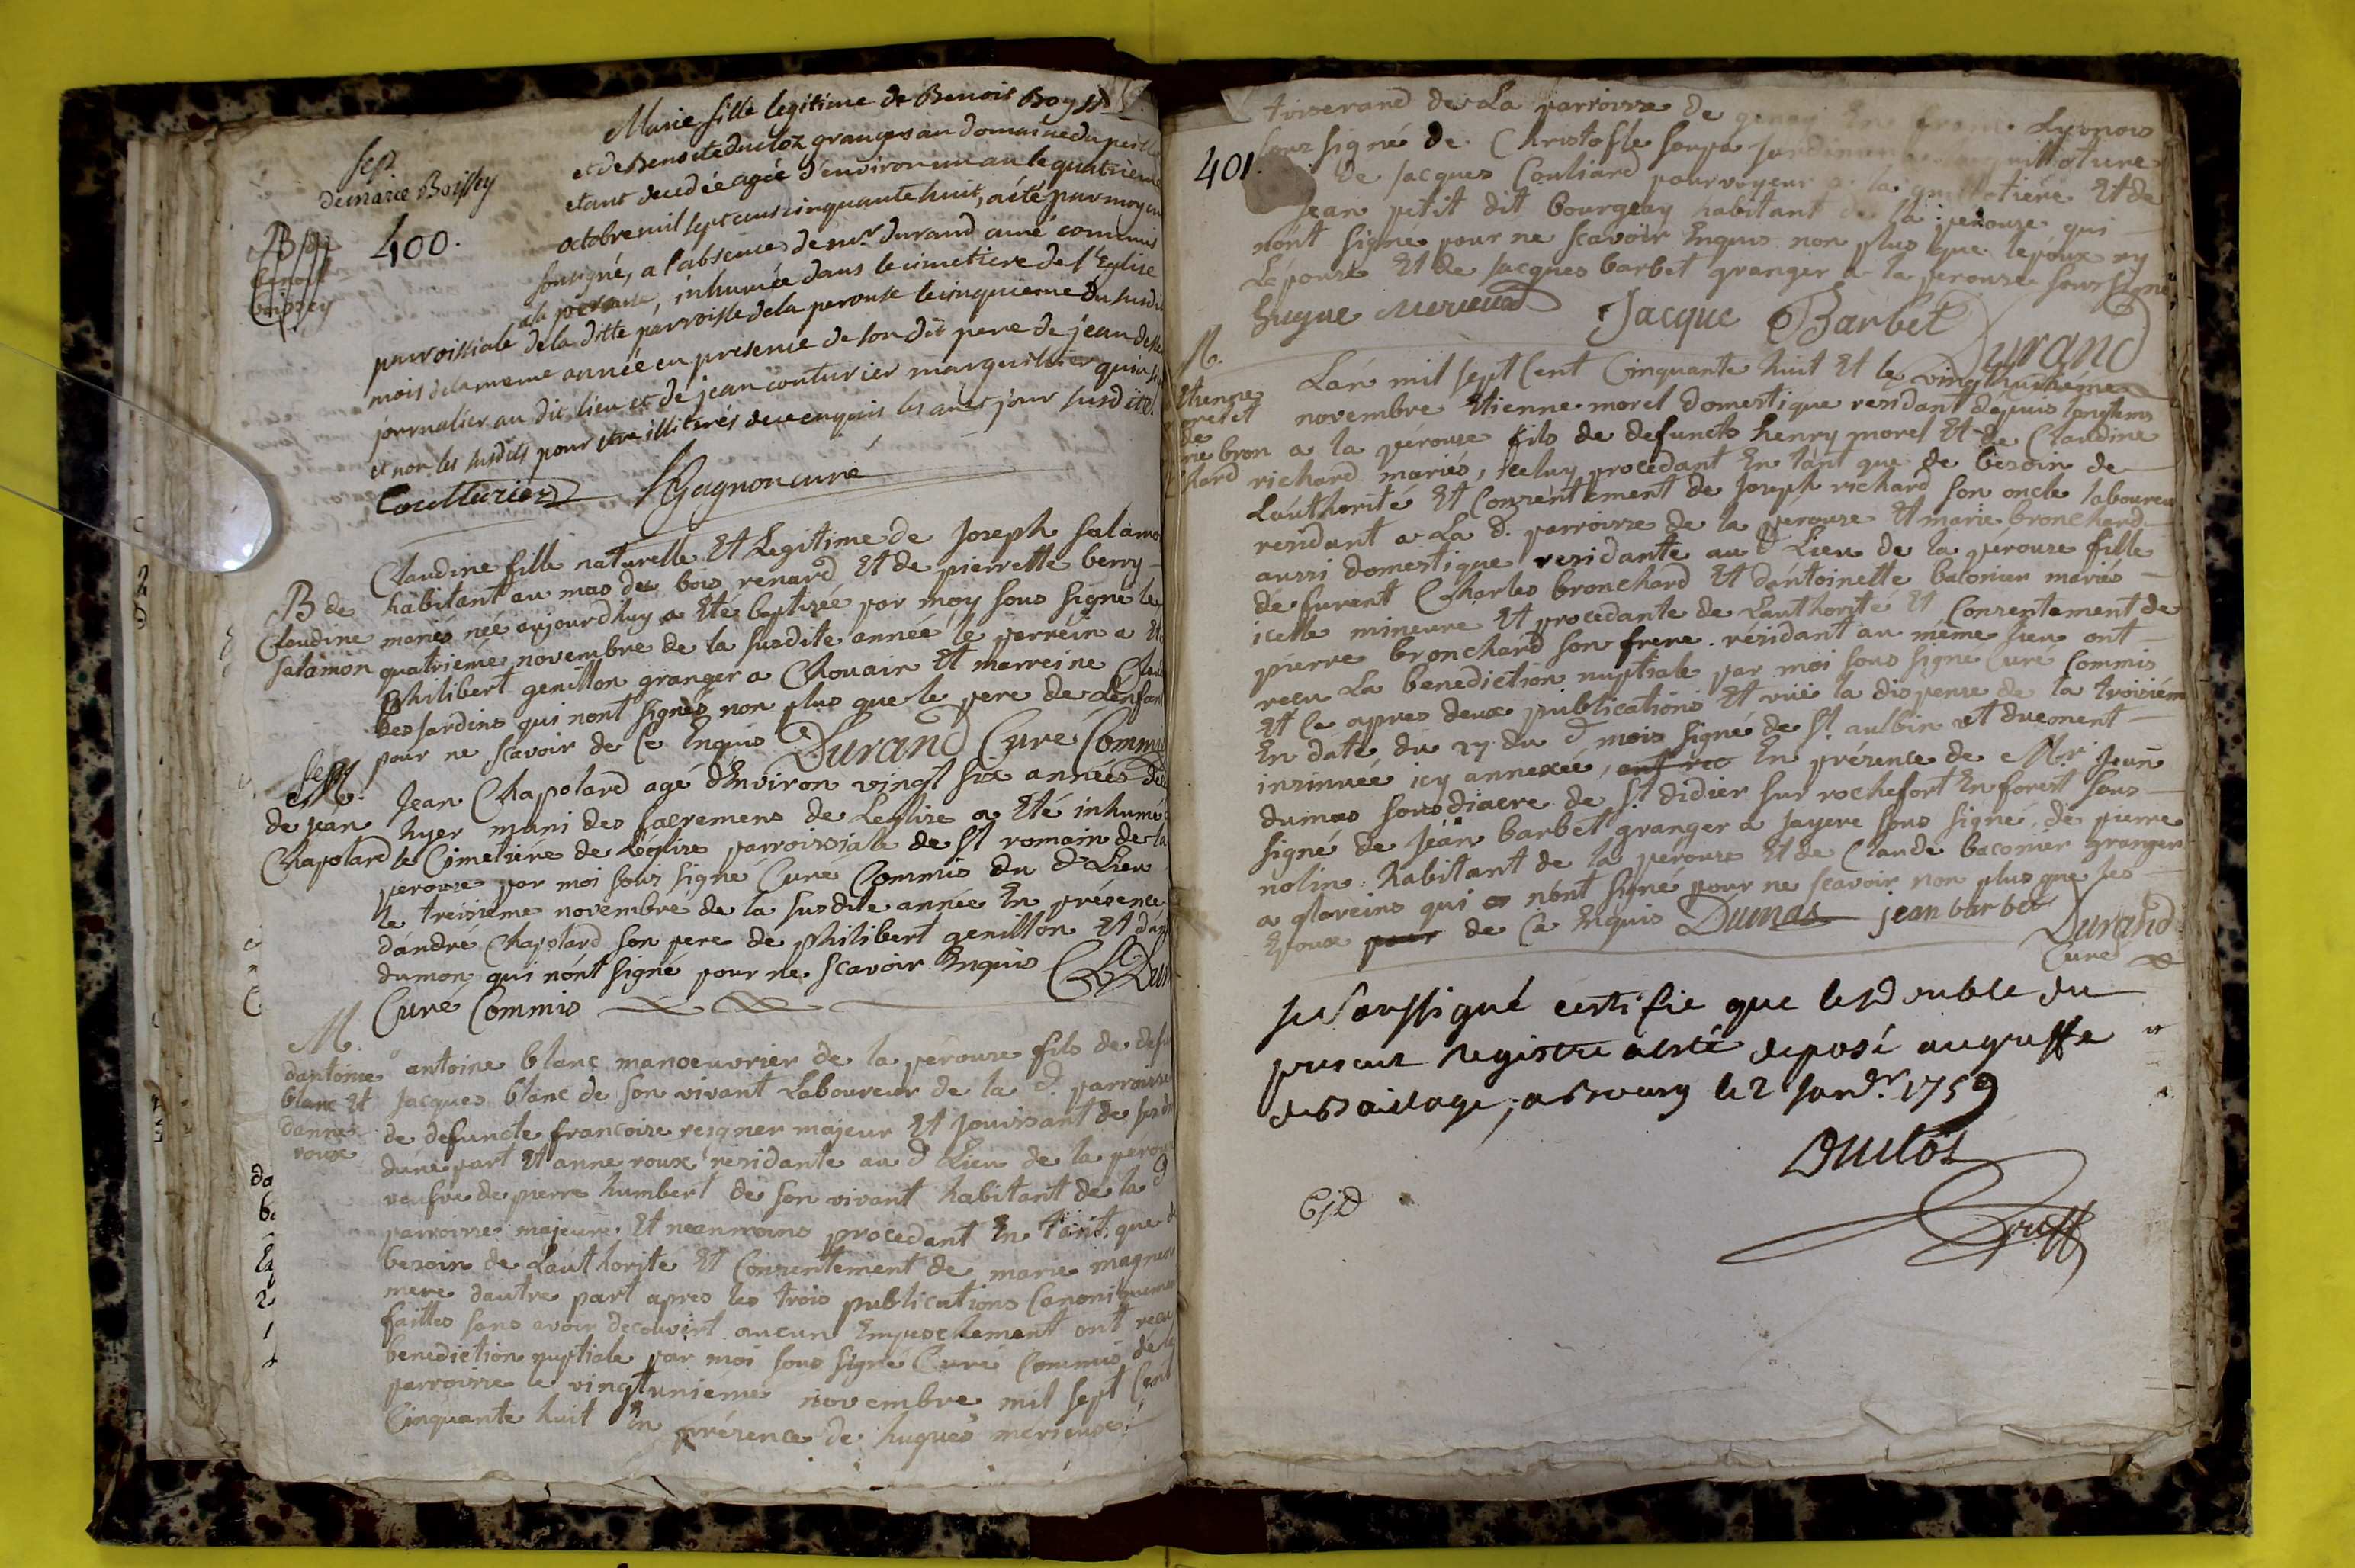 Marie fille legitime de Benoit Boyss
et de Benoite ducloz grangers au domaine du
etant decedée agée d'environ un an le quatrieme
octobre mil sept cens cinquante huit, a été par moy curé
sousigné, a l'absence de mr. durand curé commis
a la perouse, inhumée dans le cimetiere de l'Eglise
parroissiale de la ditte parroisse de la perouse le cinquieme du susdit
mois de la meme année en presence de son dit pere de jean
journalier au dit lieu et de jean couturier marguillier qui
et non les susdits pour etre illiterés de ce enquis les an et jour susdits.
Coutturier Gagnon curé
sep.
de marie Boissey
400.
benoit
boissey
Claudine fille naturelle Et Legitime de Joseph Salamo
habitant au mas des bois renard Et de pierrette berry
mariés née aujourdhuy a Eté baptizée par moy sous signé le
quatrieme novembre de la susdite année le parrein a Eté
philibert genillon granger a Chouain Et marreine
desjardins qui nont signés non plus que le pere de Lenfant
pour ne scavoir de Ce Enquis Durand Curé Commis
B de
Claudine
Salamon
Jean Chapolard agé dEnviron vingt six années
hyer muni des sacremens de Leglise a Eté inhumé
le Cimetiére de Leglise parroissiale de St romain de la
perouse par moi sous signé Curé Commis du d. Lieu
le treisieme novembre de la susdite année En présence
dandré Chapolard son pere de philibert genillon Et d
dumon qui nónt signé pour ne scavoir Enquis
Curé Commis
sep.
de jean
Chapolard
antoine blanc manoeuvrier de la pérouse fils de
jacques blanc de son vivant Laboureur de la d. parroisse
de defuncte francoise reigner majeur Et jouissant de ses
dune part Et anne roux residante au d Lieu de la pérouse
veufve de pierre humbert de son vivant habitant de la d
parroisse majeure Et neanmoins procedant En tant que d
besoin de Lauthorité Et Consentement de marie magnen
mere dautre part apres les trois publications Canoniquement
faittes sans avoir decouvert aucun Empeschement ont recu
benediction nuptiale par moi sous signé Curé Commis de la
parroisse le vingtunieme novembre mil sept Cent
Cinquante huit En présence de hugues merieux
M.
dantoine
blanc Et
danne
roux
tisserand de La parroisse de genay En franc Lyonois
sous signé de Christofle soupa jardinier
401.
de jacques Couliard pourvoyeur a la guillotiére Et de
Jean petit dit bourgeay habitant de la perouse qui
nónt signé pour ne scavoir Enquis non plus que lépoux ny
Lépouse Et de jacques barbet granger a la perouse sous signé
hugue merieux Jacque Barbet Durand
M.
Etienne
morel et
de
marie bron
chard
Lán mil sept Cent Cinquante huit Et le vingthuitieme
novembre Etienne morel domestique residant depuis longtems
a la pérouse fils de defuncts henry morel Et de Claudine
richard mariés, iceluy procédant En tánt que de besoin de
Láuthorité Et Consentement de Joseph richard son oncle laboureur
residant a La d. parroisse de la perouse Et marie bronchard
aussi domestique residante au d Lieu de la pérouse fille
de furent Charles bronchard Et dántoinette baconier mariés
icelle mineure Et procedante de Lauthorité Et Consentement de
pierre bronchard son frere résidant au même lieu ont
recu La benediction nuptiale par moi sous signé Curé Commis
Et Ce apres deux publications Et vuë la dispense de la troisiéme
En date du 27 du d mois signé de St. aulbin et duement
insinuée icy annexée, ont rec En présence de Mr. Jean
dumas sousdiacre de St. didier sur rochefort En forest sous
signé de Jean barbet granger a jayere sous signé, de pierre
nolin habitant de la pérouse Et de Claude baconier granger
a glareins qui nónt signé pour ne scavoir non plus que les
Epoux pour de Ce Enquis Dumas jean barbet Durand
Curé
Je soussigné certifie que le double du
present registre a esté deposé au greffe
du Bailliage, a Bourg le 2 janvr. 1759
Duclos
Greff